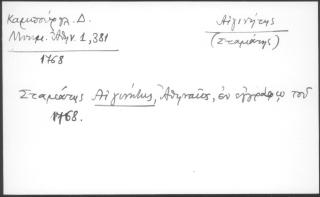 Καμπούργλ. Δ.
Μνημ. Ἀθην. 1, 381
1768
Αἰγινήτης
(Σταμάτης)
Σταμάτης Αἰγινήτης, Ἀθηναῖος, ἐν ἐγγράφῳ τοῦ
1768.